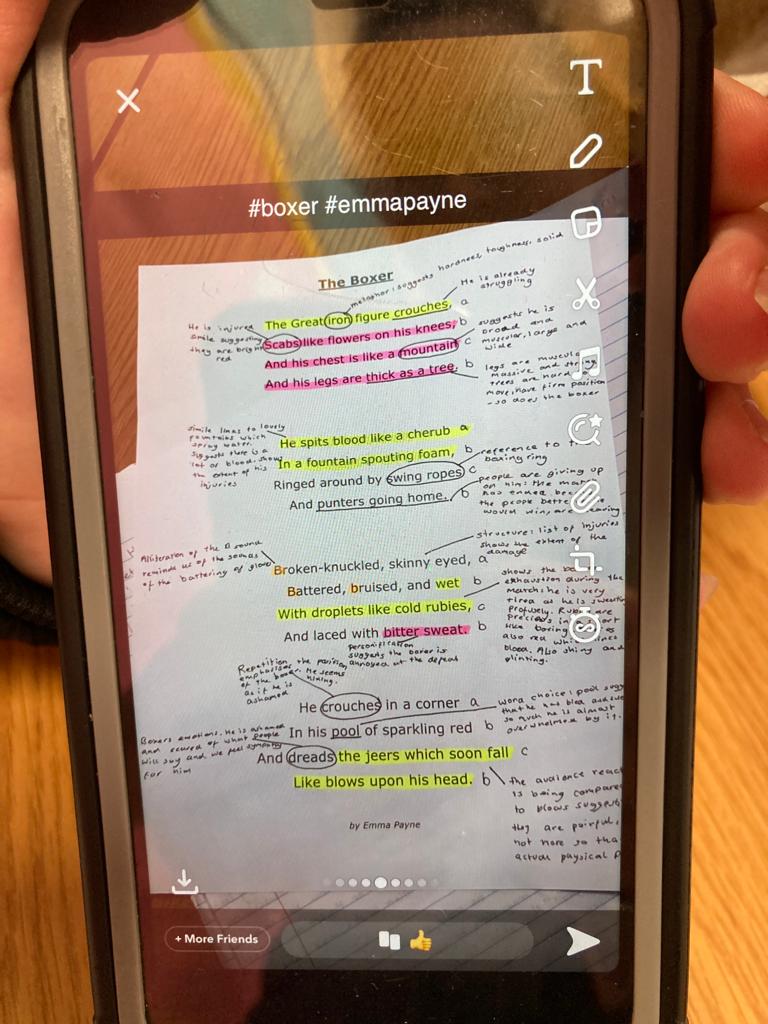 #boxer #emmapayne
The Boxer
metaphor: suggests hardness toughness, solid
He is already
struggling
The Great iron figure crouches, a
He is injured
simile suggesting
they are bright
red
Scabs like flowers on his knees, b
suggests he is
broad and
muscular, large and
wide
And his chest is like a mountain c
And his legs are thick as a tree. b
legs are
massive and
trees are hard
move, have firm position
- so does the boxer
simile links to lovely
fountains which
spray water.
suggests there is a
lot of blood, shows
the extent of his
injuries
He spits blood like a cherub a
In a fountain spouting foam, b
reference to
boxing ring
Ringed around by swing ropes c
And punters going home. b
people are giving up
on him: the
has ended
the people
would win, are
structure: list of injuries
shows the extent of the
damage
Alliteration of the B sound
reminds us of the sounds
of the battering of gloves
Broken-knuckled, skinny eyed, a
Battered, bruised, and wet b
With droplets like cold rubies, c
And laced with bitter sweat. b
shows the
exhaustion during the
match: he is very
tired as he is
profusely.
precious
like boxing
also red
blood. Also shiny and
glinting.
personification
suggests the boxer is
annoyed at the defeat
Repetition, the position
emphasises
of the boxer. He seems
as if he is hiding.
ashamed
He crouches in a corner a
In his pool of sparkling red b
word choice: pool
that he has bled and
so much he is almost
overwhelmed by it.
Boxers emotions. He is ashamed
and scared of what people
will say and we feel sympathy
for him
And dreads the jeers which soon fall c
Like blows upon his head. b
the audience
is being
to blows
they are painful,
not more so
actual physical
by Emma Payne
+ More Friends